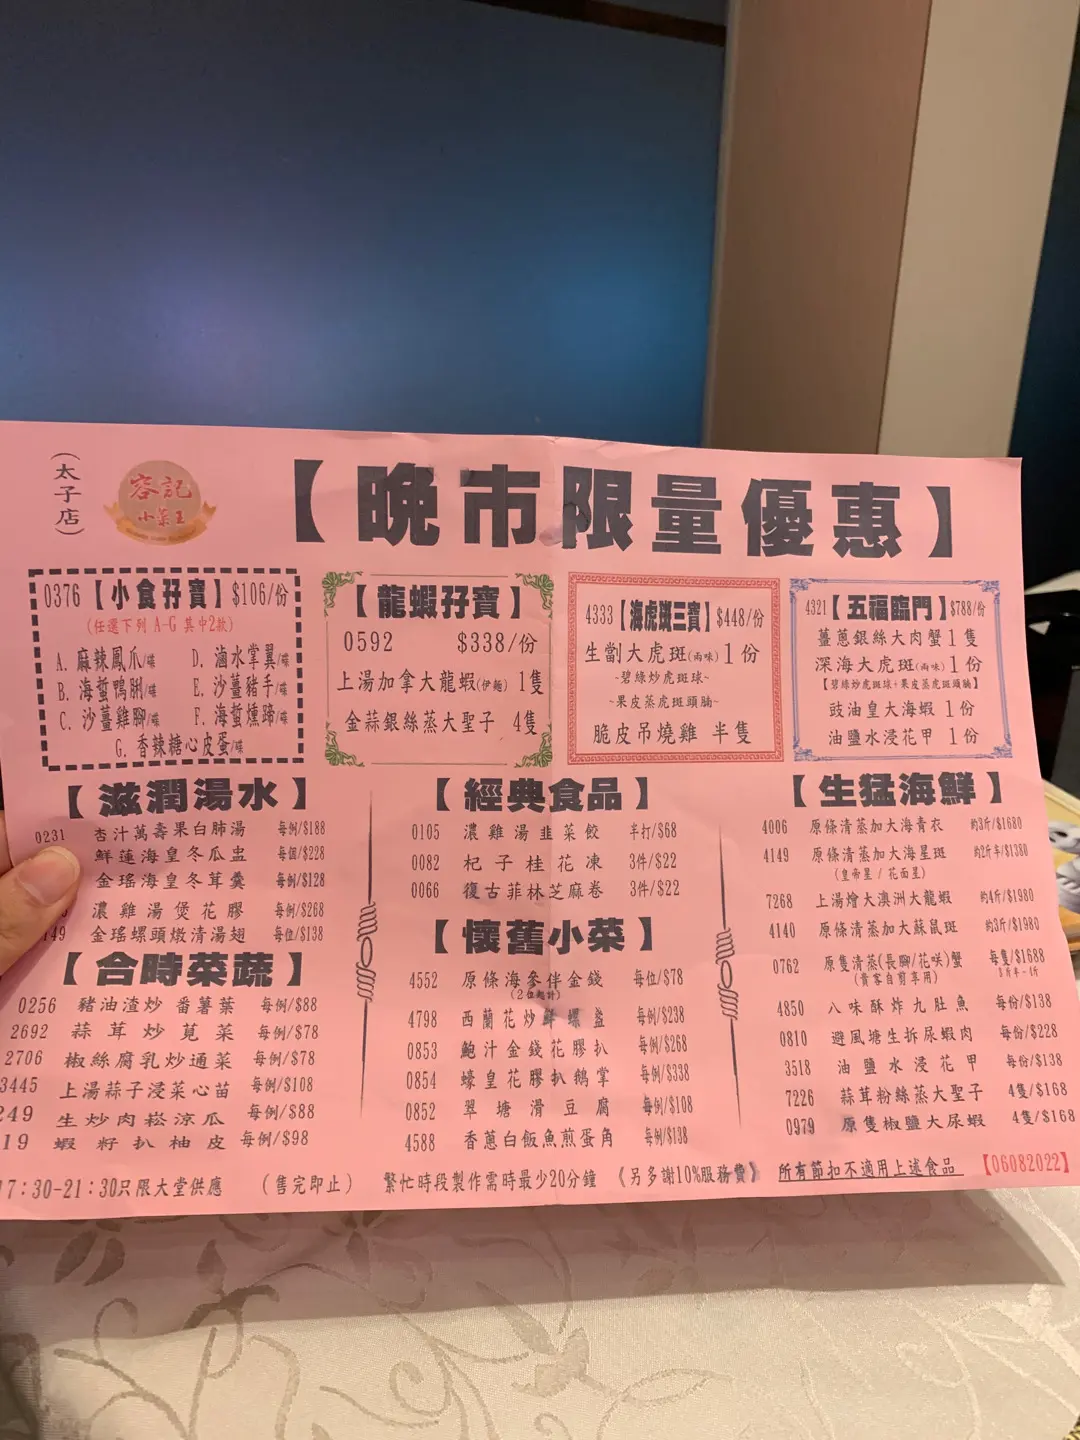 (太子店)
容記
小菜王
【晚市限量優惠】
0376【小食孖寶】$106/份
(任選下列 A-G 其中2款)
A. 麻辣鳳爪/碟
D. 滷水掌翼/碟
B. 海蜇鴨脷/碟
E. 沙薑豬手/碟
C. 沙薑雞腳/碟
F. 海蜇燻蹄/碟
G. 香辣糖心皮蛋/碟
【龍蝦孖寶】
0592 $338/份
上湯加拿大龍蝦(伊麵) 1隻
金蒜銀絲蒸大聖子 4隻
4333【海虎斑三寶】$448/份
生劏大虎斑(兩味) 1份
~碧綠炒虎斑球~
~果皮蒸虎斑頭腩~
脆皮吊燒雞 半隻
4321【五福臨門】$788/份
薑蔥銀絲大肉蟹 1隻
深海大虎斑(兩味) 1份
【碧綠炒虎斑球+果皮蒸虎斑頭腩】
豉油皇大海蝦 1份
油鹽水浸花甲 1份
【滋潤湯水】
0231 杏汁萬壽果白肺湯 每例/$188
鮮蓮海皇冬瓜盅 每個/$228
金瑤海皇冬茸羹 每例/$128
濃雞湯煲花膠 每例/$268
149 金瑤螺頭燉清湯翅 每位/$138
【合時菜蔬】
0256 豬油渣炒番薯葉 每例/$88
2692 蒜茸炒莧菜 每例/$78
2706 椒絲腐乳炒通菜 每例/$78
3445 上湯蒜子浸菜心苗 每例/$108
249 生炒肉崧涼瓜 每例/$88
19 蝦籽扒柚皮 每例/$98
【經典食品】
0105 濃雞湯韭菜餃 半打/$68
0082 杞子桂花凍 3件/$22
0066 復古菲林芝麻卷 3件/$22
【懷舊小菜】
4552 原條海參伴金錢 每位/$78
(2位起計)
4798 西蘭花炒鮮螺盞 每例/$238
0853 鮑汁金錢花膠扒 每例/$268
0854 蠔皇花膠扒鵝掌 每例/$338
0852 翠塘滑豆腐 每例/$108
4588 香蔥白飯魚煎蛋角 每例/$138
【生猛海鮮】
4006 原條清蒸加大海青衣 約3斤/$1680
4149 原條清蒸加大海星斑 約2斤半/$1380
(皇帝星 / 花面星)
7268 上湯燴大澳洲大龍蝦 約4斤/$1980
4140 原條清蒸加大蘇鼠斑 約3斤/$1980
0762 原隻清蒸(長腳/花咲)蟹 每隻/$1688
(貴客自剪享用) 3斤半-4斤
4850 八味酥炸九肚魚 每份/$138
0810 避風塘生拆尿蝦肉 每份/$228
3518 油鹽水浸花甲 每份/$138
7226 蒜茸粉絲蒸大聖子 4隻/$168
0979 原隻椒鹽大尿蝦 4隻/$168
17:30-21:30只限大堂供應 (售完即止) 繁忙時段製作需時最少20分鐘 《另多謝10%服務費》 所有節扣不適用上述食品 【06082022】